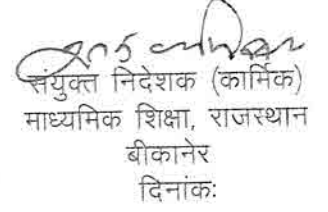 संयुक्त निदेशक (कार्मिक)
माध्यमिक शिक्षा, राजस्थान
बीकानेर
दिनांक: